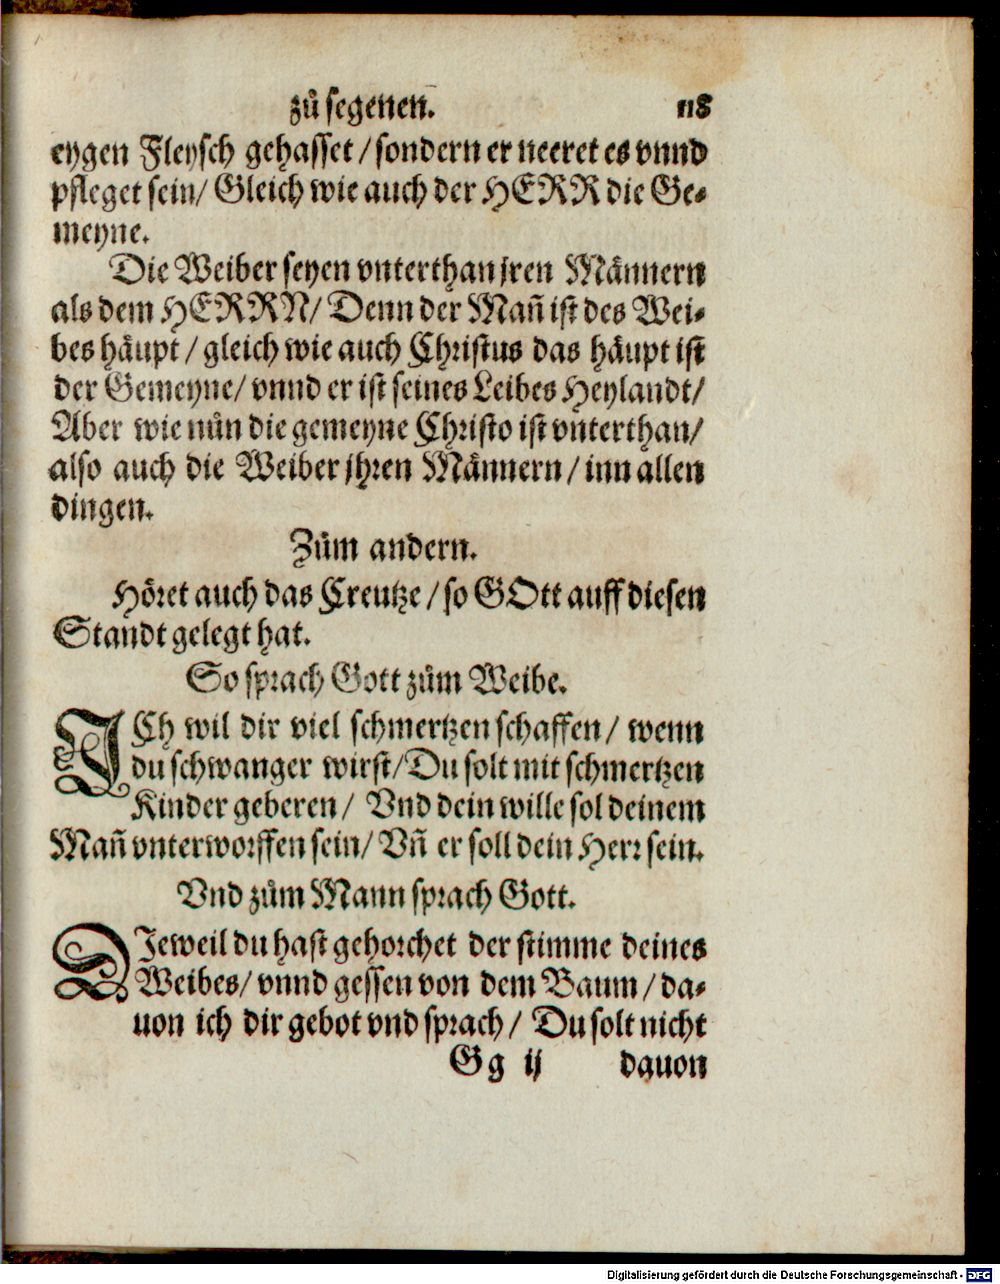 zů segenen. 118
eygen Fleysch gehasset / sondern er neeret es vnnd
pfleget sein / Gleich wie auch der HERR die Ge-
meyne.
Die Weiber seyen vnterthan jren Männern
als dem HERRN / Denn der Mañ ist des Wei-
bes häupt / gleich wie auch Christus das häupt ist
der Gemeyne / vnnd er ist seines Leibes Heylandt /
Aber wie nůn die gemeyne Christo ist vnterthan /
also auch die Weiber jhren Männern / inn allen
dingen.
Zům andern.
Höret auch das Creutze / so GOtt auff diesen
Standt gelegt hat.
So sprach Gott zům Weibe.
ICh wil dir viel schmertzen schaffen / wenn
du schwanger wirst / Du solt mit schmertzen
Kinder geberen / Vnd dein wille sol deinem
Mañ vnterworffen sein / Vñ er soll dein Herr sein.
Vnd zům Mann sprach Gott.
DJeweil du hast gehorchet der stimme deines
Weibes / vnnd gessen von dem Baum / da-
uon ich dir gebot vnd sprach / Du solt nicht
Gg ij dauon
Digitalisierung gefördert durch die Deutsche Forschungsgemeinschaft - DFG